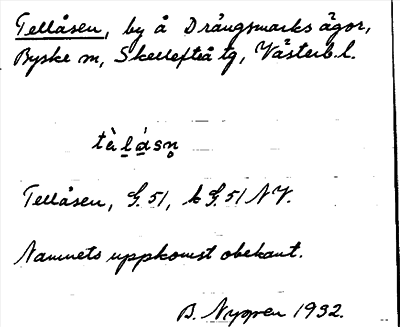 Tellåsen, by å Drängsmarks ägor,
Byske sn, Skellefteå tg, Västerb. l.
tèl̲á̲sn̥
Tellåsen, G. 51, k G. 51 NV.
Namnets uppkomst obekant.
B. Nygren 1932.